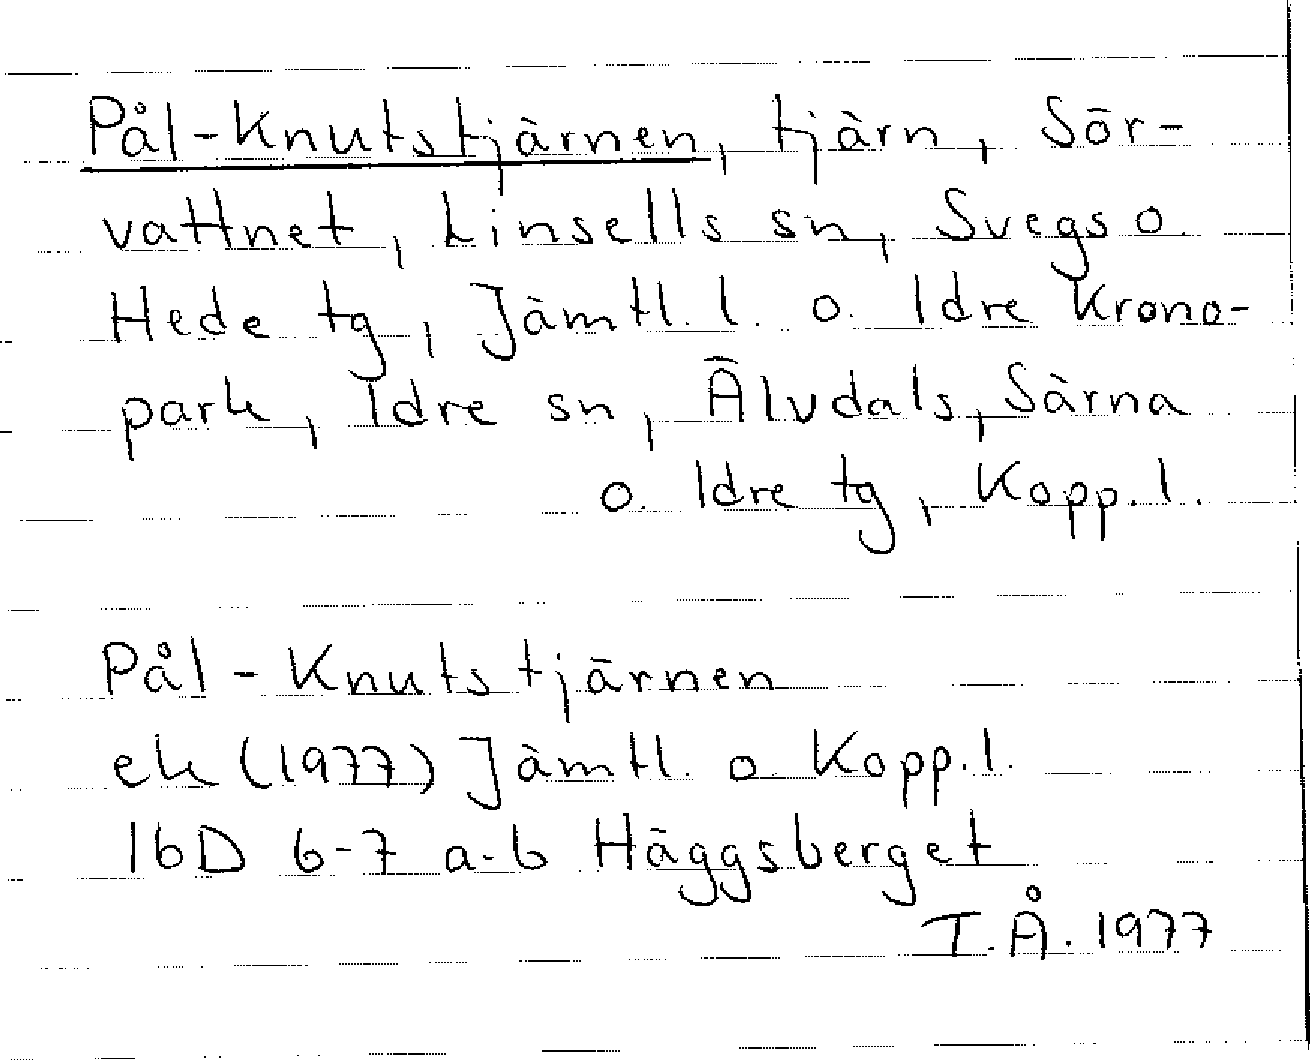 Pål-Knutstjärnen, tjärn, Sör-
vattnet, Linsells sn, Svegs o.
Hede tg, Jämtl. l. o. Idre Krono-
park, Idre sn, Älvdals, Särna
o. Idre tg, Kopp. l.
Pål-Knutstjärnen
ek (1977) Jämtl. o Kopp. l.
16D 6-7 a-b Häggsberget
T.Å. 1977